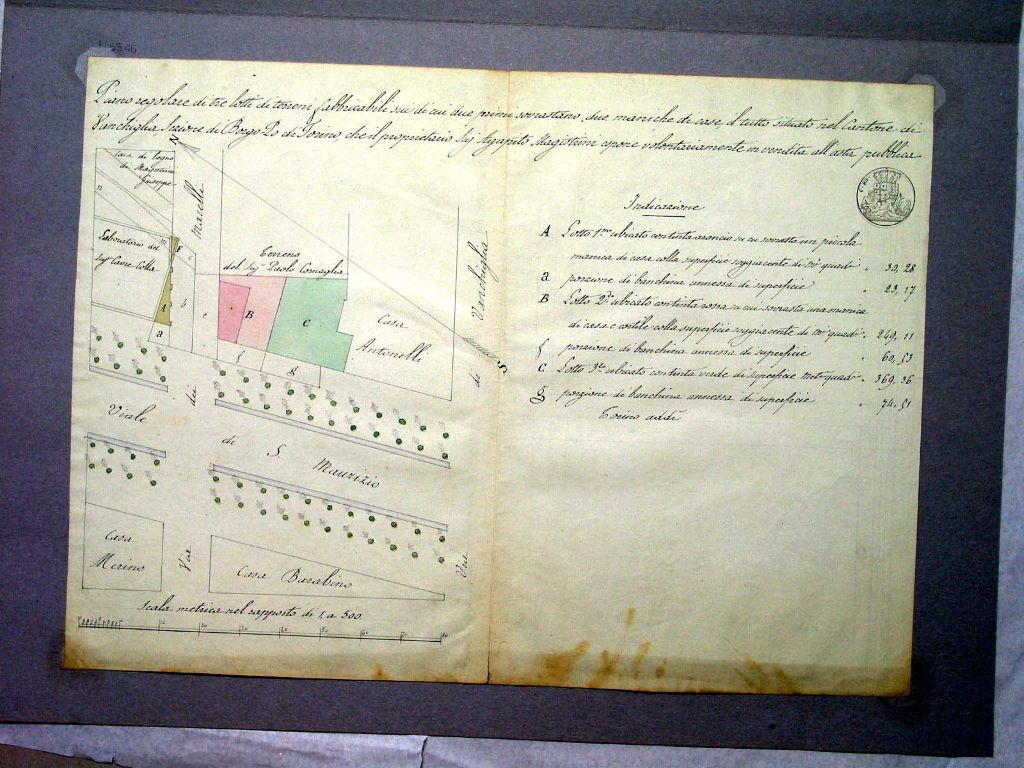 Piano regolare di tre lotti di terreni fabbricabili su di cui due primi sovrastano due maniche di case, il tutto situato nel Cantone di
Vanchiglia Sezione di Borgo Po di Torino, che il proprietario Sig. Agapito Magistrini espone volontariamente in vendita all'asta pubblica
N
Casa di legno
di Magistrini
Giuseppe
n
Laboratorio del
m
F
A
a
b
Macelli
Terreno
del Sig. Paolo Cornaglia
B
C
f
g
Casa
Antonelli
Vanchiglia
S
dei
de
Viale
di
S.
Maurizio
Casa
Merino
Via
Casa Barabino
Via
Scala metrica nel rapporto di 1, a 500
10
20
30
40
50
60
70
80
Indicazione
A Lotto 1mo ubicato con tinta arancio su cui sovrasta una piccola
manica di casa colla superficie soggiacente di mi quadi 30, 28
a porzione di banchina annessa di superficie 23, 17
B Lotto 2do ubicato con tinta rossa su cui sovrasta una manica
di casa e cortile colla superficie soggiacente di mi quadi 249, 11
f porzione di banchina annessa di superficie 60, 53
C Lotto 3zo ubicato con tinta verde di superficie metri quadi 369, 36
g porzione di banchina annessa di superficie 74, 51
Torino addì